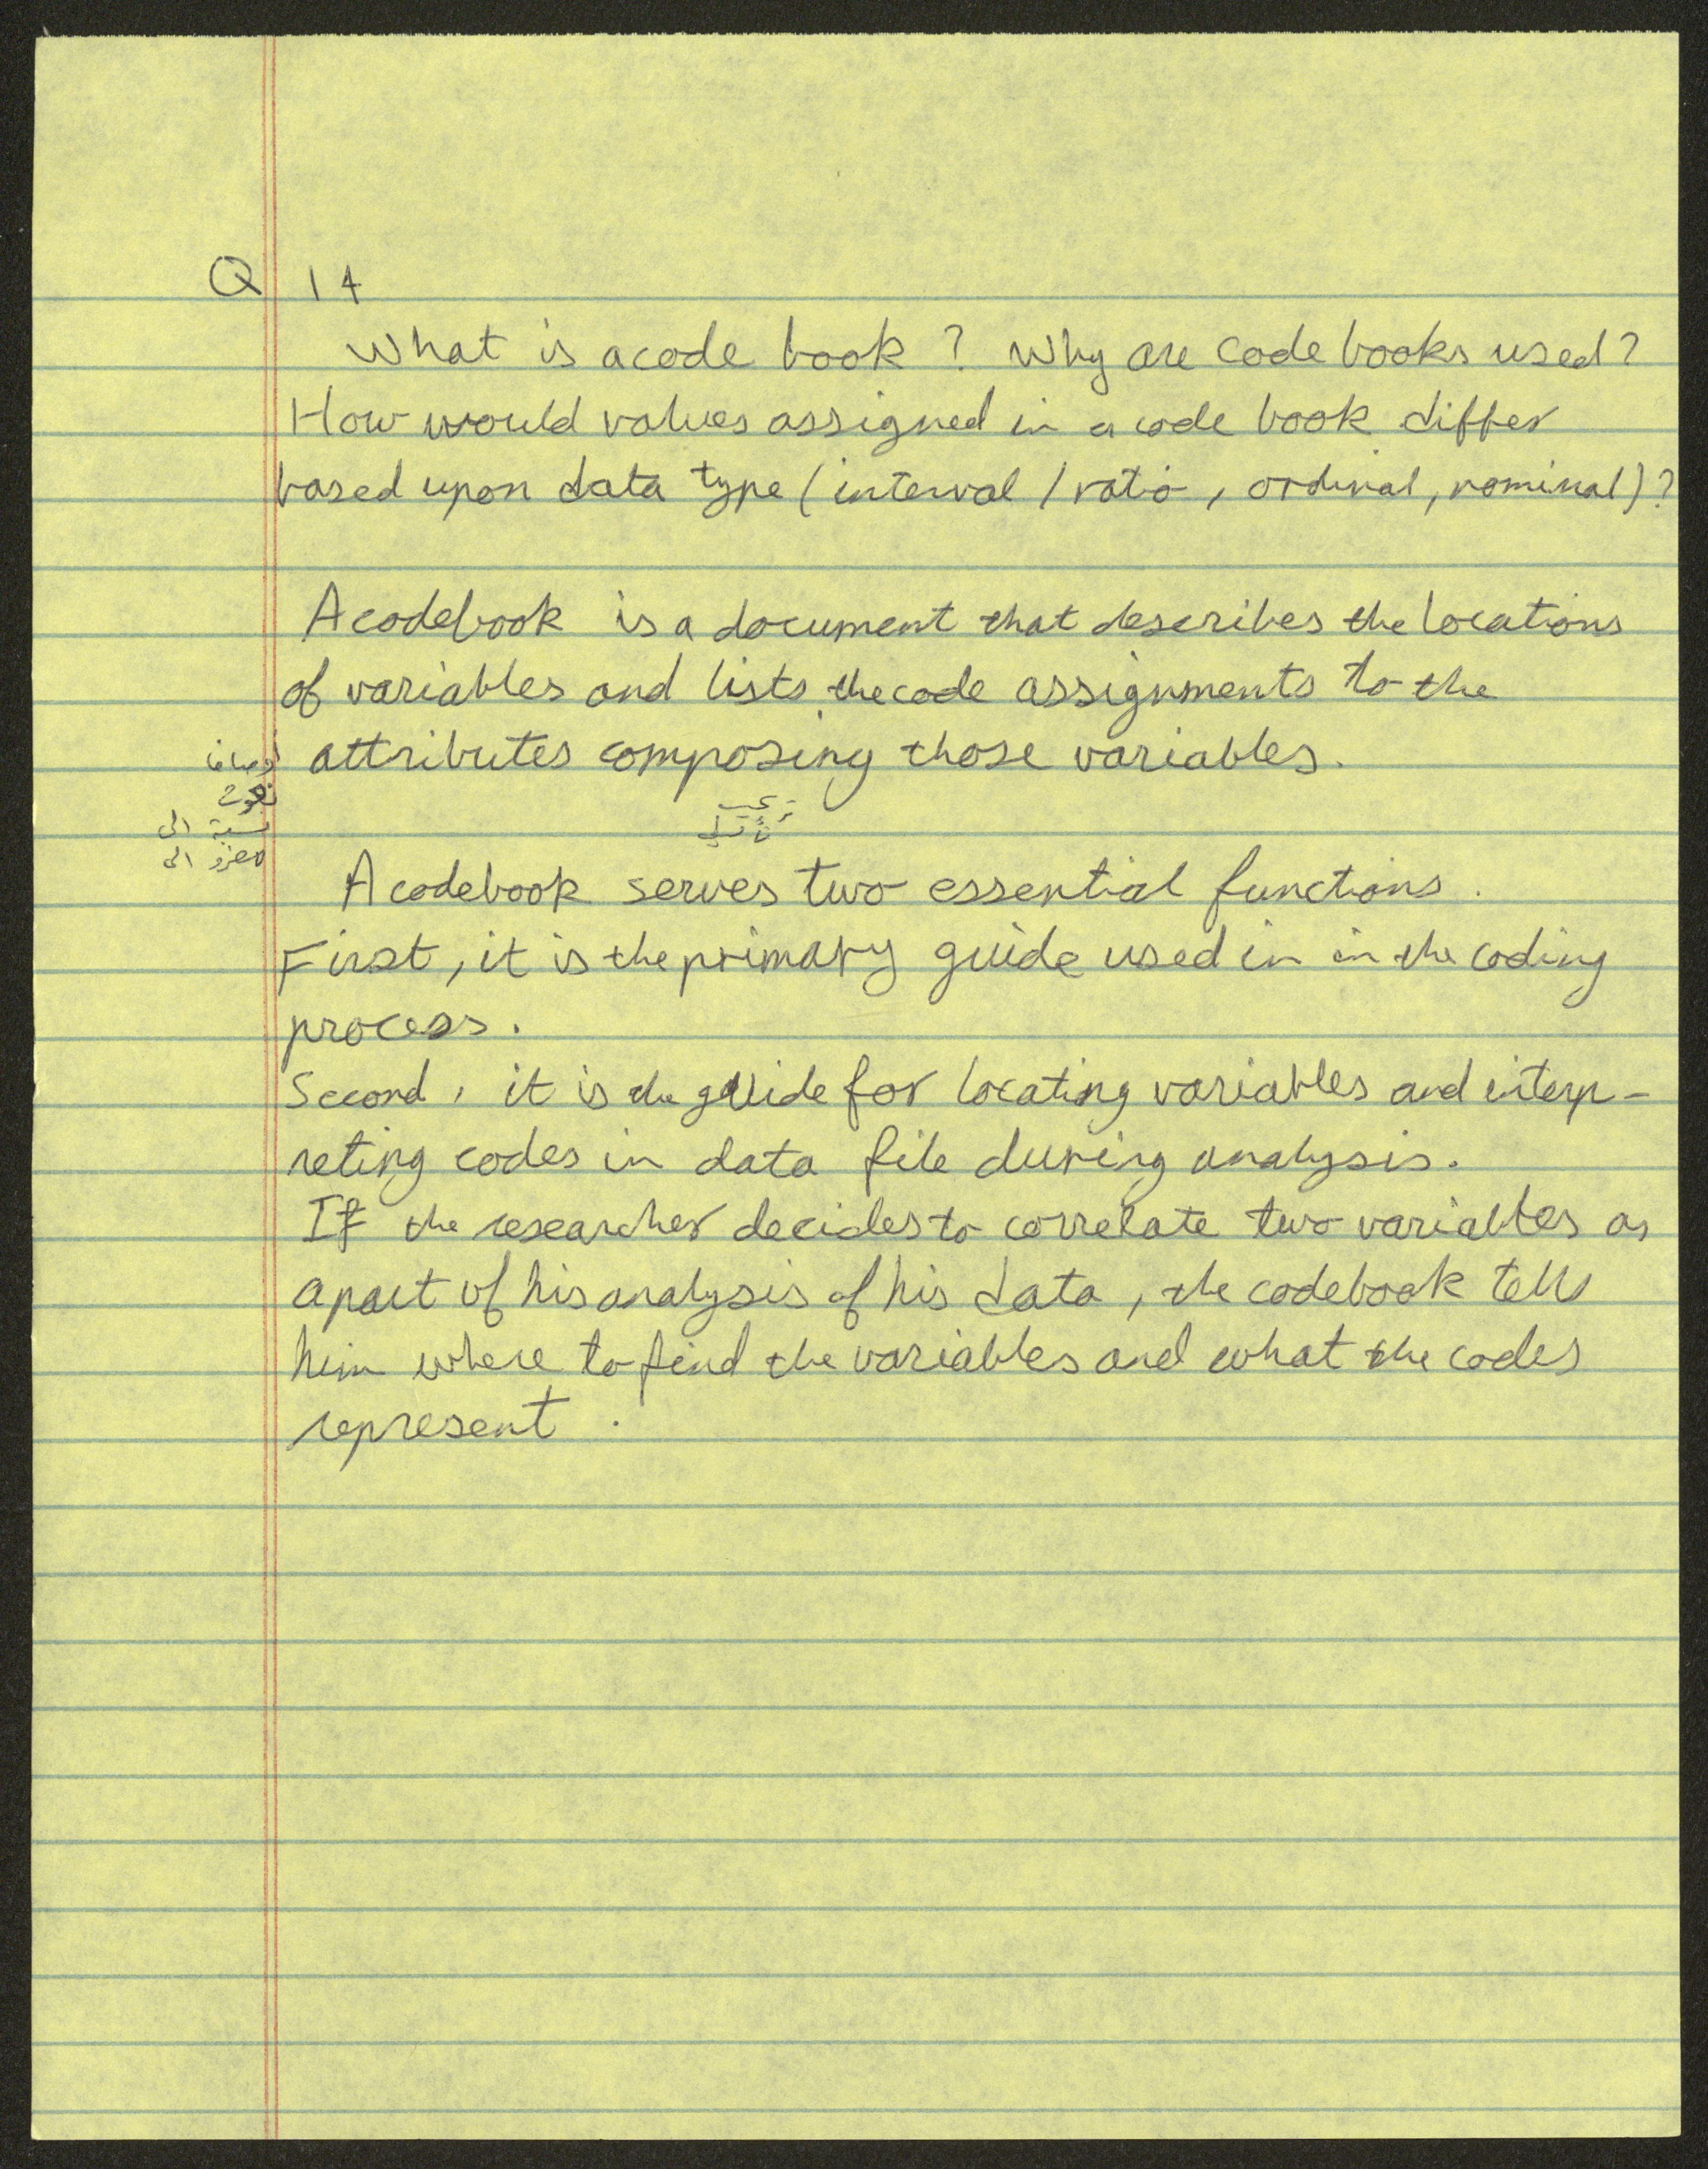 Q 14
What is a code book ? Why are code books used?
How would values assigned in a code book differ
based upon data type (interval / ratio, ordinal, nominal)?
A codebook is a document that describes the locations
of variables and lists the code assignments to the
attributes composing those variables.
نعوت
نسبة الى
A codebook serves two essential functions.
First, it is the primary guide used in in the coding
process.
Second, it is the guide for locating variables and interp-
reting codes in data file during analysis.
If the researcher decides to correlate two variables as
a part of his analysis of his data, the codebook tells
him where to find the variables and what the codes
represent.